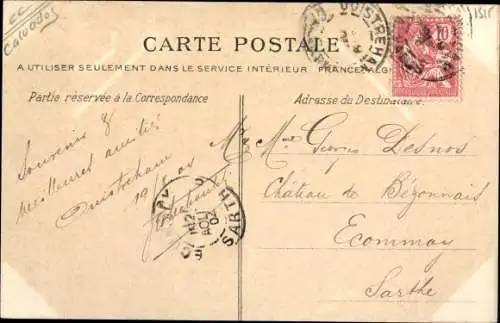 cc
Calvados
1515
CARTE POSTALE
A UTILISER SEULEMENT DANS LE SERVICE INTÉRIEUR FRANCE-ALG
Partie réservée à la Correspondance
Adresse du Destinataire
OUISTREHAM
10
Souvenirs &
meilleures amitiés
Ouistreham
19
AOUT
02
SARTHE
M. Georges Desnos
Château de Bézonnais
Ecommoy
Sarthe